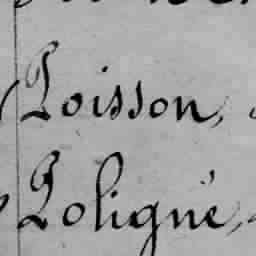 Poisson,
Poligné,